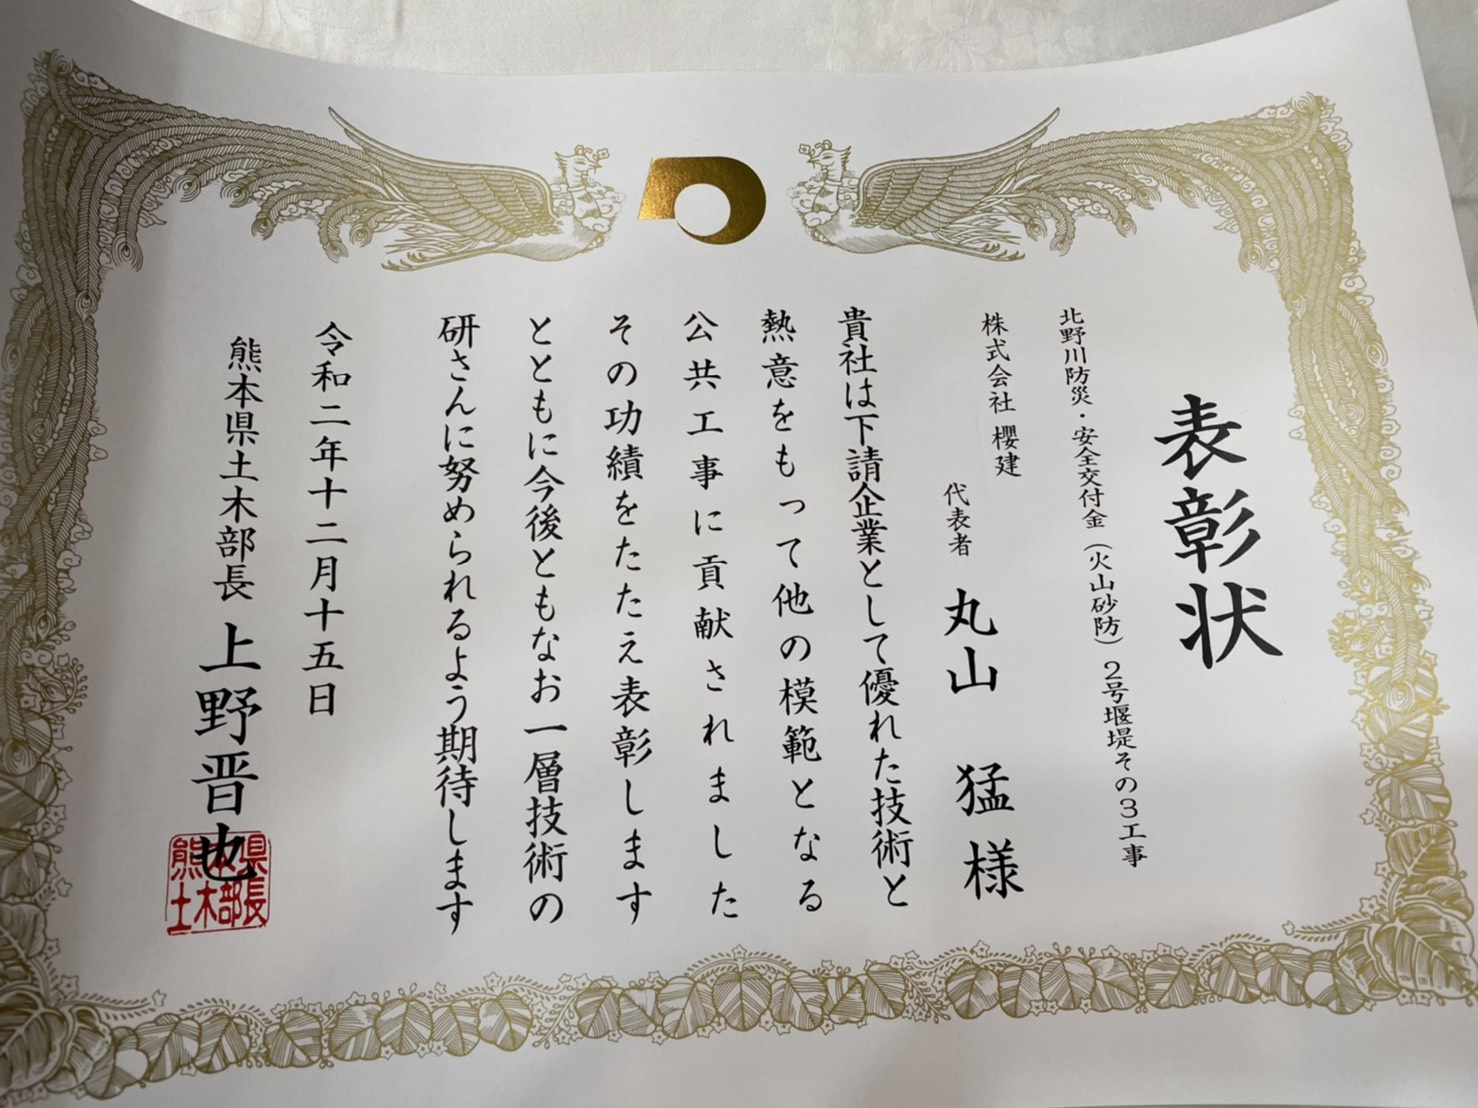 表彰状
北野川防災・安全交付金（火山砂防）２号堰堤その３工事
株式会社 櫻建
代表者 丸山 猛 様
貴社は下請企業として優れた技術と
熱意をもって他の模範となる
公共工事に貢献されました
その功績をたたえ表彰します
とともに今後ともなお一層技術の
研さんに努められるよう期待します
令和二年十二月十五日
熊本県土木部長 上野晋也
熊本県
土木部長